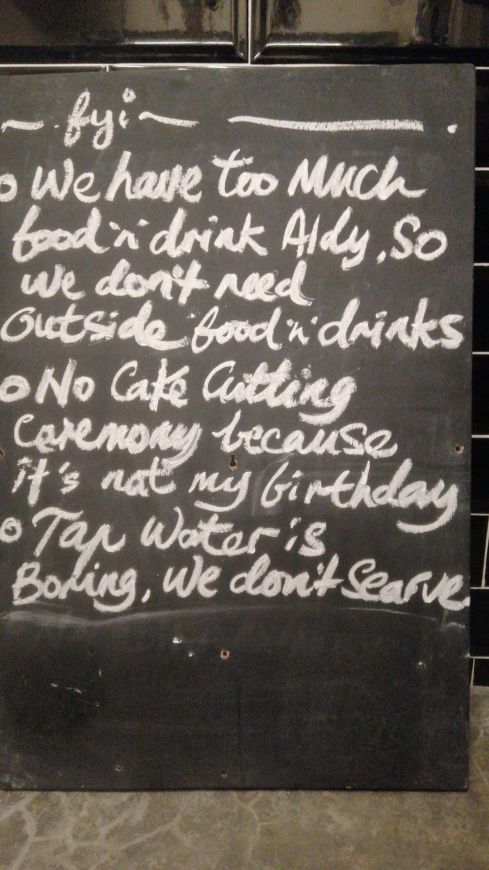 ~ fyi ~
o We have too Much
food 'n' drink Aldy, So
we don't need
Outside food 'n' drinks
o No Cake Cutting
Ceremony because
it's not my birthday
o Tap Water is
Boring, We don't Searve